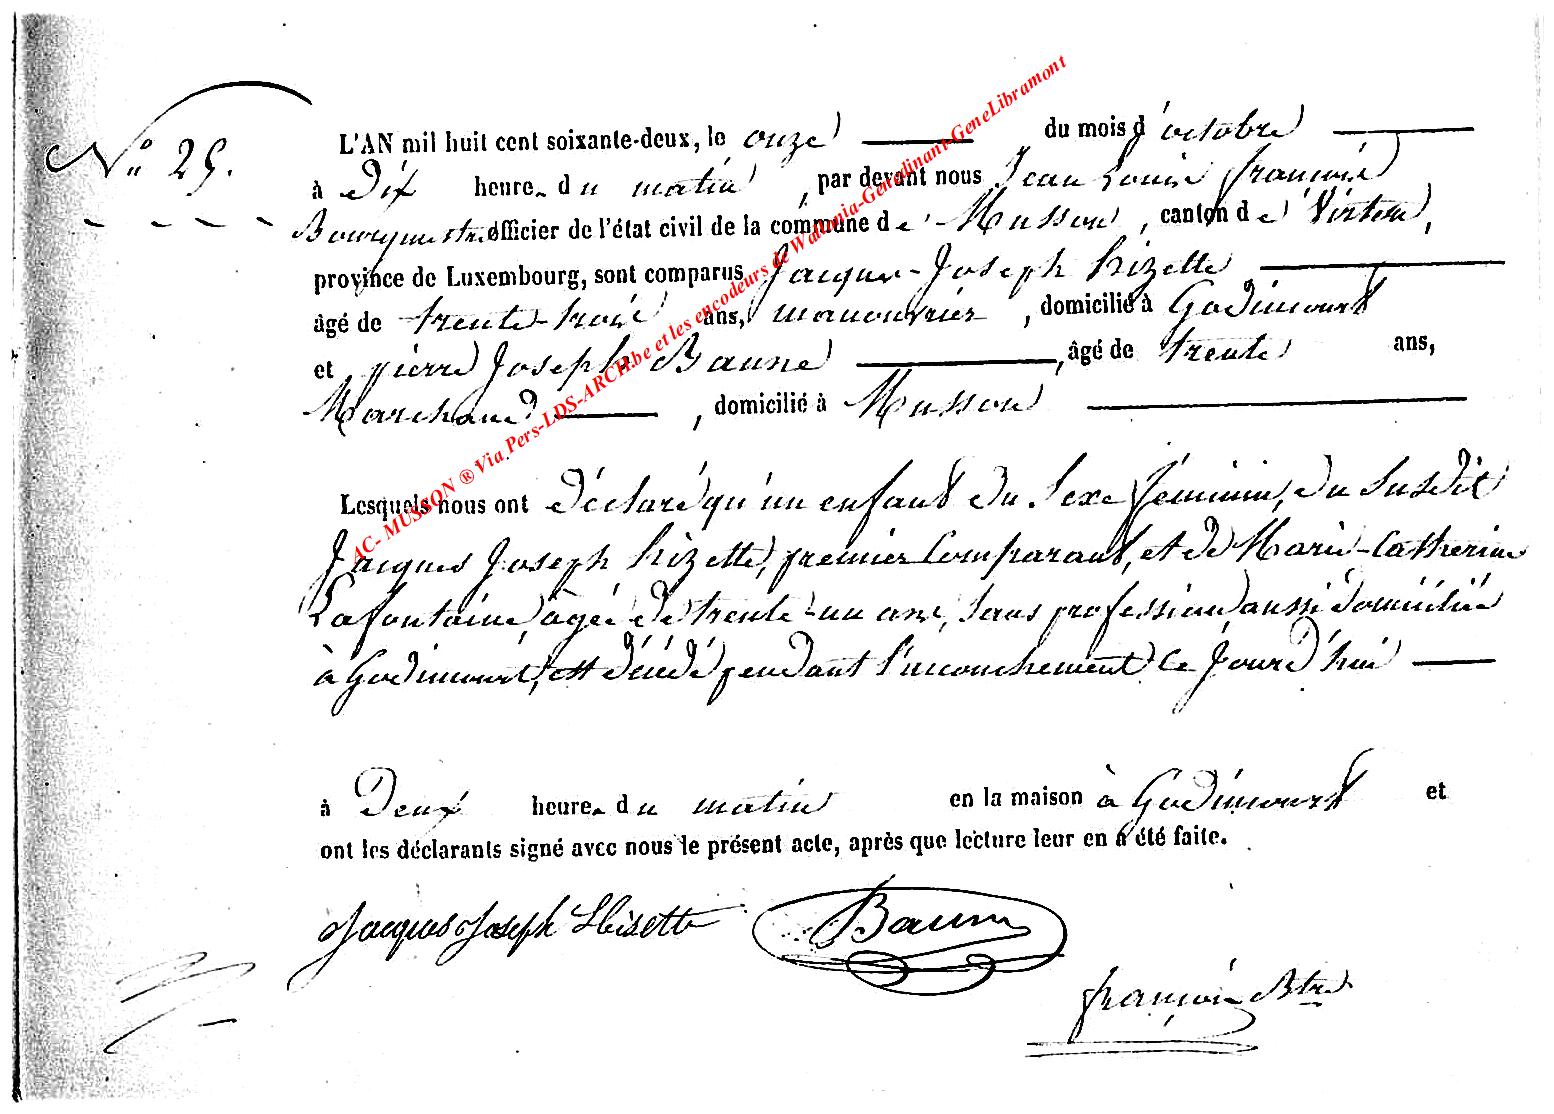 N° 25.
L'AN mil huit cent soixante-deux, le onze du mois d'octobre
à Dix heure du matin, par devant nous Jean Louis françois
Bourgmestre officier de l'état civil de la commune de Musson, canton de Virton,
province de Luxembourg, sont comparus Jacques-Joseph hizette
âgé de trente-trois ans, manouvrier, domicilié à Godincourt
et pierre Joseph Baune, âgé de trente ans,
Marchand, domicilié à Musson
Lesquels nous ont déclaré qu'un enfant du Sexe féminin, du Susdit
Jacques Joseph hizette, premier Comparant, et de Marie-Catherine
Lafontaine, âgée de trente-un ans, Sans profession, aussi domiciliée
à Godincourt, est décédé pendant l'accouchement Ce Jourd'hui
à Deux heure du matin en la maison à Godincourt et
ont les déclarants signé avec nous le présent acte, après que lecture leur en a été faite.
Jacques Joseph Hisette Baune
françois Btre
AC- MUSSON ® Via Pers-LDS-ARCH.be et les encodeurs de Wallonia-Genedinant-GeneLibramont